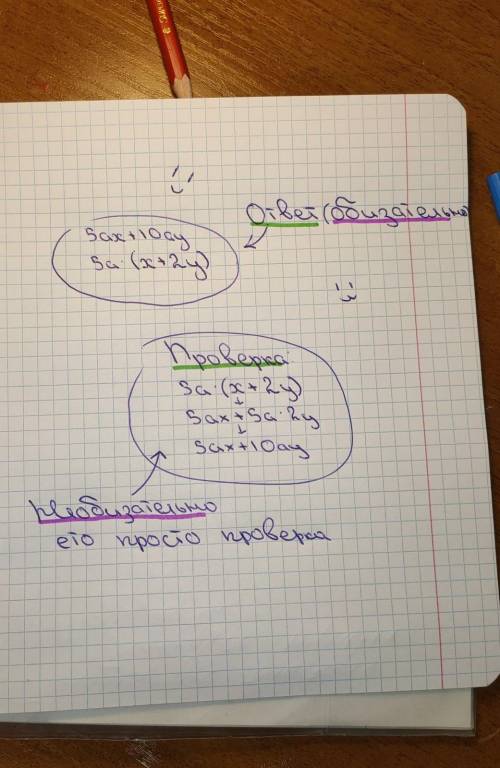 Ответ (обизательно
5ax+10ay
5a·(x+2y)
Проверка
5a·(x+2y)
5ax+5a·2y
5ax+10ay
Необизательно
ето просто проверка